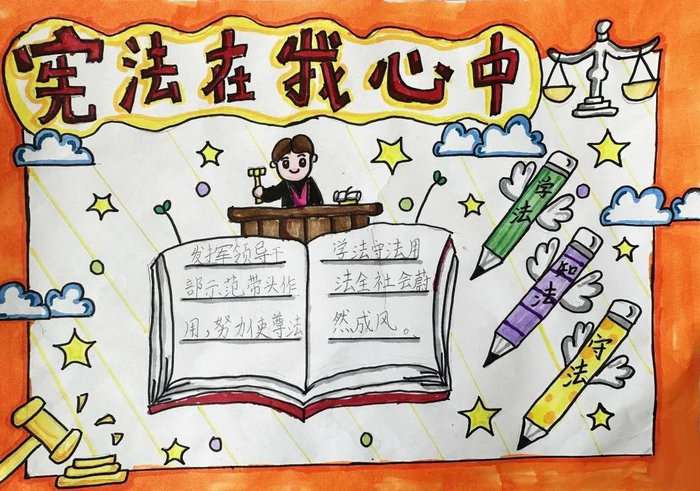 宪法在我心中
发挥领导干
部示范,带头作
用,努力使尊法
学法守法用
法全社会蔚
然成风。
学法
知法
守法